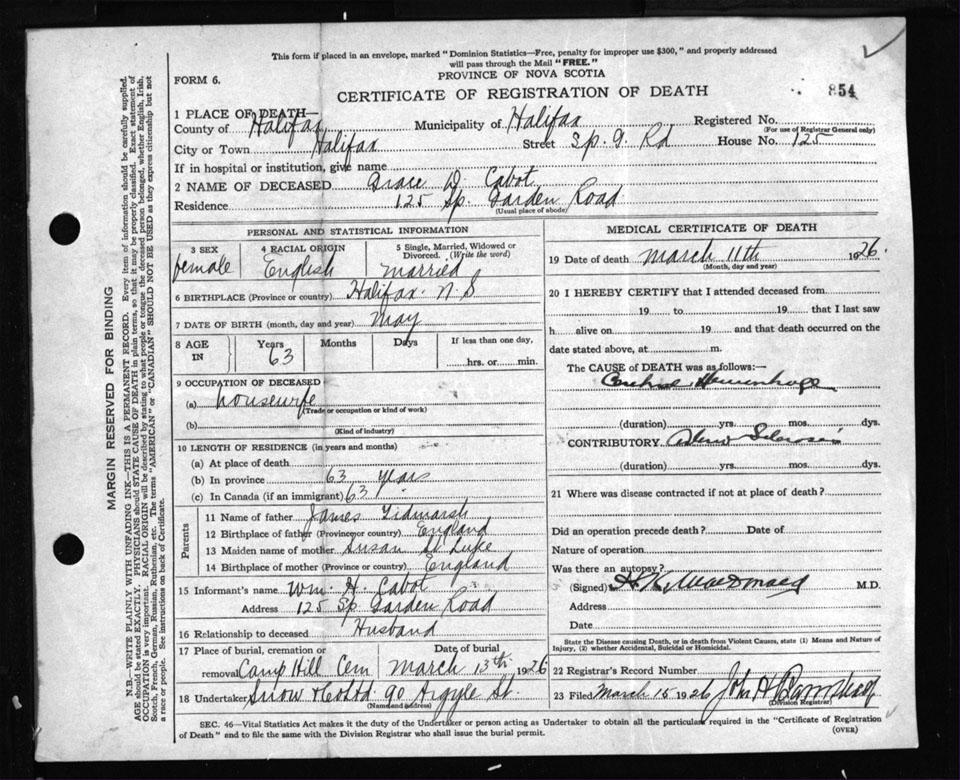 This form if placed in an envelope, marked "Dominion Statistics—Free, penalty for improper use $300," and properly addressed
will pass through the Mail "FREE."
FORM 6.
PROVINCE OF NOVA SCOTIA
CERTIFICATE OF REGISTRATION OF DEATH
854
1 PLACE OF DEATH—
County of Halifax Municipality of Halifax Registered No.
(For use of Registrar General only)
City or Town Halifax Street Sp. G. Rd House No. 125
If in hospital or institution, give name
2 NAME OF DECEASED Grace D. Cabot
Residence 125 Sp. Garden Road
(Usual place of abode)
PERSONAL AND STATISTICAL INFORMATION
3 SEX female
4 RACIAL ORIGIN English
5 Single, Married, Widowed or Divorced. (Write the word) married
6 BIRTHPLACE (Province or country) Halifax N.S
7 DATE OF BIRTH (month, day and year) May
8 AGE IN Years 63 Months Days If less than one day, hrs. or min.
9 OCCUPATION OF DECEASED
(a) housewife
(Trade or occupation or kind of work)
(b)
(Kind of industry)
10 LENGTH OF RESIDENCE (in years and months)
(a) At place of death
(b) In province 63 years
(c) In Canada (if an immigrant) 63
Parents
11 Name of father James Tidmarsh
12 Birthplace of father (Province or country) England
13 Maiden name of mother Susan Luke
14 Birthplace of mother (Province or country) England
15 Informant's name Wm. H. Cabot
Address 125 Sp. Garden Road
16 Relationship to deceased Husband
17 Place of burial, cremation or removal Camp Hill Cem
Date of burial March 13th 1926
18 Undertaker Snow & Co Ltd 90 Argyle St.
(Name and address)
MEDICAL CERTIFICATE OF DEATH
19 Date of death March 11th 1926.
(Month, day and year)
20 I HEREBY CERTIFY that I attended deceased from
19 to 19 that I last saw
h alive on 19 and that death occurred on the
date stated above, at m.
The CAUSE of DEATH was as follows:—
Cerebral Hemorrhage
(duration) yrs. mos. dys.
CONTRIBUTORY. Sclerosis
(duration) yrs. mos. dys.
21 Where was disease contracted if not at place of death?
Did an operation precede death? Date of
Nature of operation
Was there an autopsy?
(Signed) MacDonald M.D.
Address
Date
State the Disease causing Death, or in death from Violent Causes, state (1) Means and Nature of
Injury, (2) whether Accidental, Suicidal or Homicidal.
22 Registrar's Record Number
23 Filed March 15 1926 John A
(Division Registrar)
SEC. 46—Vital Statistics Act makes it the duty of the Undertaker or person acting as Undertaker to obtain all the particulars required in the "Certificate of Registration
of Death" and to file the same with the Division Registrar who shall issue the burial permit.
(OVER)
MARGIN RESERVED FOR BINDING
N.B.—WRITE PLAINLY WITH UNFADING INK—THIS IS A PERMANENT RECORD. Every item of information should be carefully supplied.
AGE should be stated EXACTLY. PHYSICIANS should STATE CAUSE OF DEATH in plain terms, so that it may be properly classified. Exact statement of
OCCUPATION is very important. RACIAL ORIGIN will be described by stating to what people or tongue the deceased person belonged, whether English, Irish,
Scotch, French, German, Russian, Ruthenian, etc. The terms "AMERICAN" or "CANADIAN" SHOULD NOT BE USED as they express citizenship but not
a race or people. See instructions on back of Certificate.